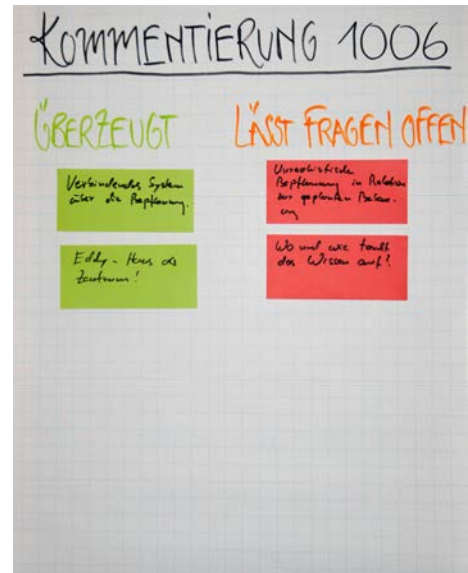 KOMMENTIERUNG 1006
ÜBERZEUGT
Verbindendes System
über die Bepflanzung.
Eddy-Haus als
Zentrum!
LÄSST FRAGEN OFFEN
Unrealistische
Bepflanzung in Relation
zur geplanten Bebau-
ung
Wo und wie
das Wissen auf?